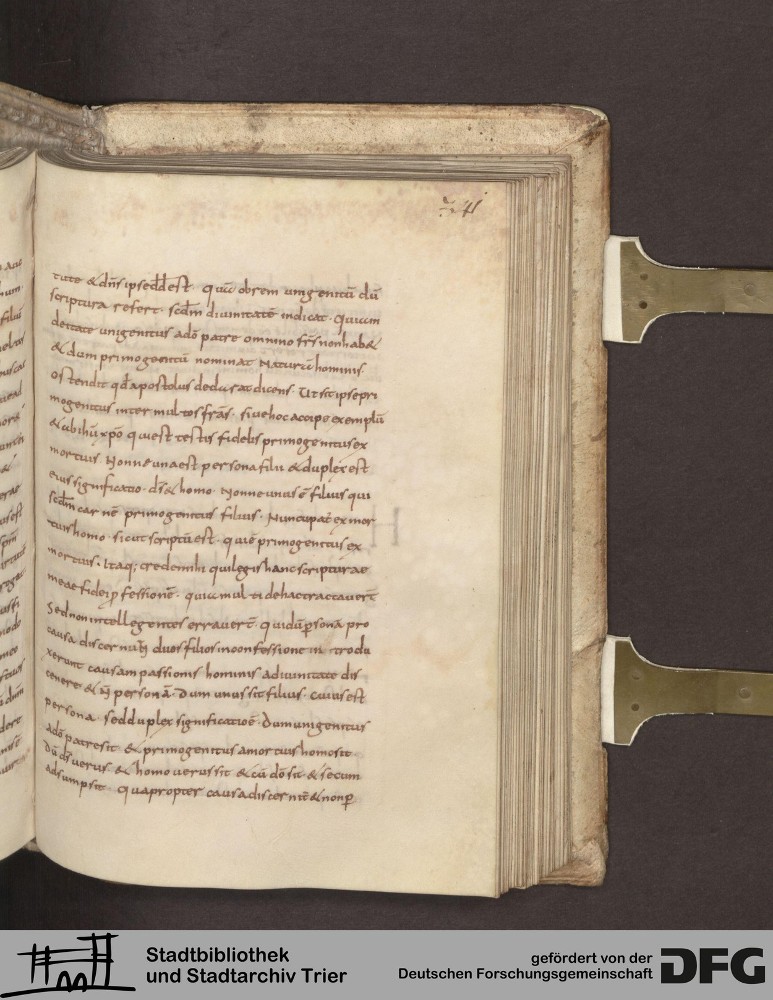 341
tate & dn̄s ipse d̄s est. quia obrem unigenitū dū
scriptura refert. scd̄m diuinitatē indicat. Quiacum
deitate unigenitus ado patre omnino frs̄ non hab&
& dum primogenitū nominat Naturā hominis
ostendit qd̄ apostolus declarat dicens. Ut sit ipse pri
mogenitus inter multos frās. siue hoc accipe exemplū
& ubi ihū xpō qui est testis fidelis primogenitus ex
mortuis. Nonne una est persona filii & duplex est
eius significatio. d̄s & homo. Nonne unus ē filius qui
scd̄m carnē primogenitus filius. Nuncupat̄ ex mor
tuis homo. sicut scriptū est. qui ē primogenitus ex
mortuis. Itaq; crede mihi qui legis hanc scripturae
meae fidei p fessionē. quia multi de hac tractauer̄t
Sed non intellegentes errauer̄t. qui dū psona pro
causa discernunt̄ duos filios in confessione introdu
xerunt causam passionis hominis a diuinitate dis
cenere & n̄ personā. Dum unus sit filius. cuius est
persona. sed duplex significatio ē. Dum unigenitus
ado patre sit & primogenitus a mortuis homo sit.
Dū d̄s uerus & homo uerus sit & cū dō sit & secum
adsumpsit. Quapropter causa discernit̄ & non p
Stadtbibliothek
und Stadtarchiv Trier
gefördert von der
Deutschen Forschungsgemeinschaft
DFG